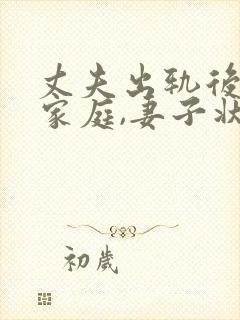 丈夫出轨後
家庭,妻子狀
初歲